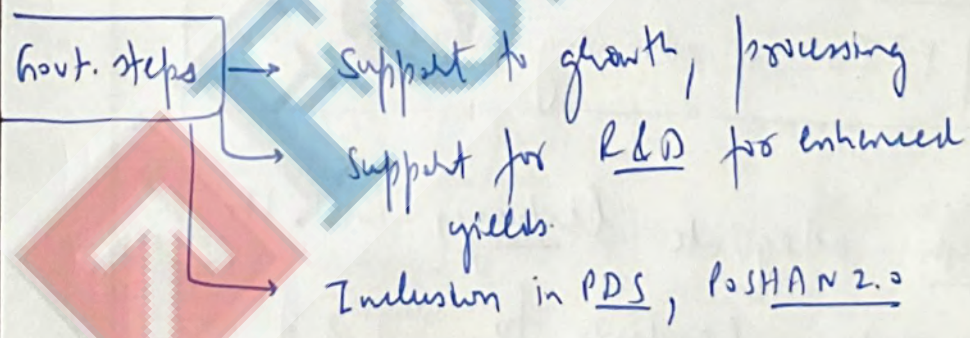 Govt. steps → Support to growth, processing
→ Support for R&D for enhanced
yields.
→ Inclusion in PDS, POSHAN 2.0